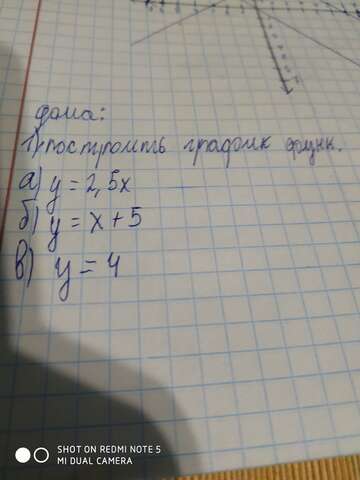 дома:
1) построить график функ.
а) y = 2,5x
б) y = x + 5
в) y = 4
SHOT ON REDMI NOTE 5
MI DUAL CAMERA